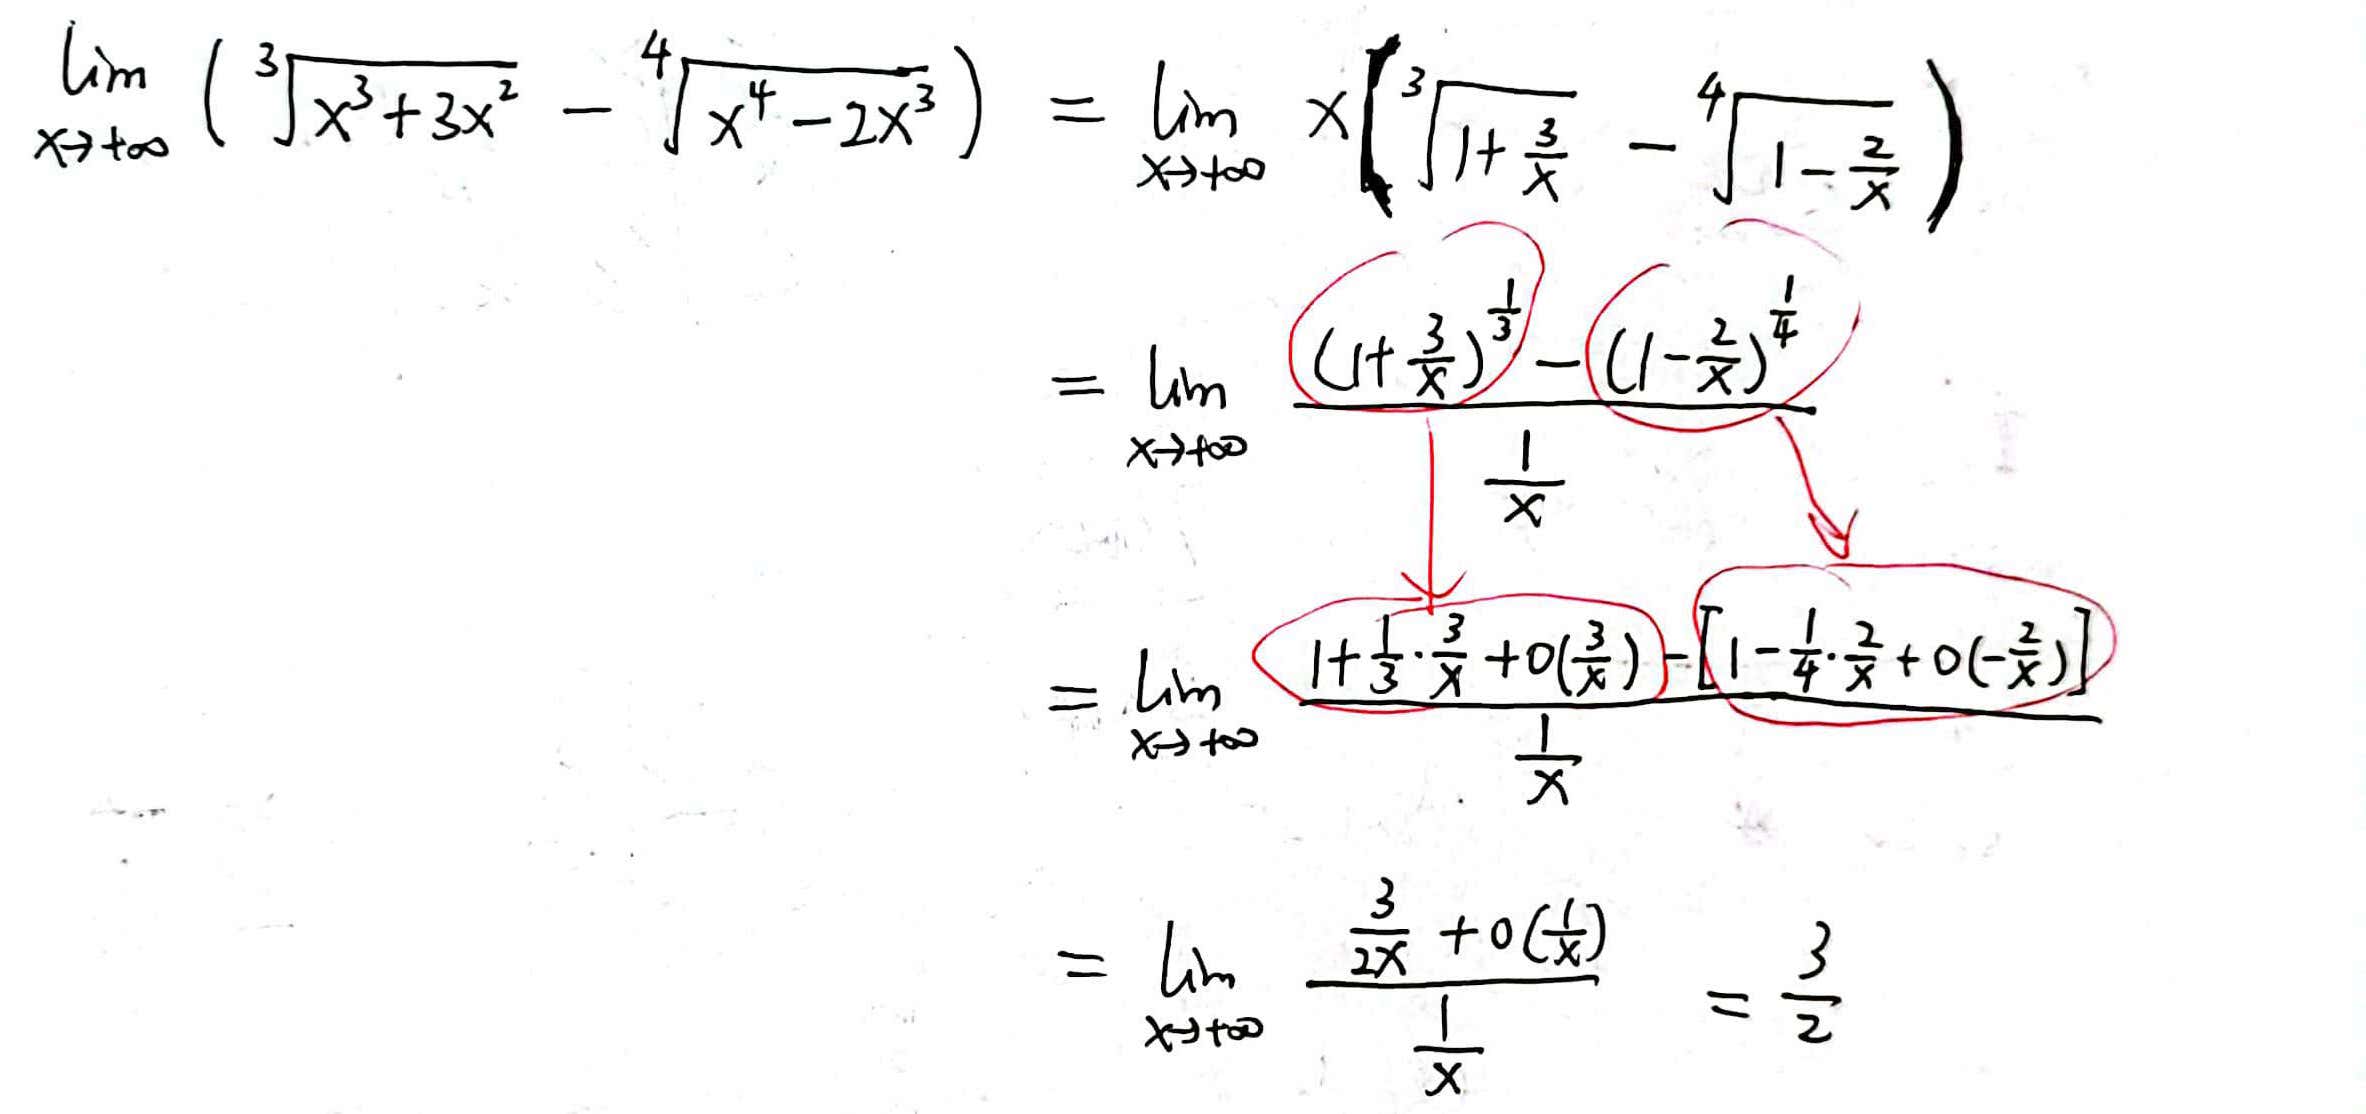 lim x→+∞ ( ∛(x³+3x²) − ∜(x⁴−2x³) ) = lim x→+∞ x( ∛(1+3/x) − ∜(1−2/x) )
= lim x→+∞ ((1+3/x)^(1/3) − (1−2/x)^(1/4)) / (1/x)
= lim x→+∞ (1+1/3·3/x+o(3/x) − [1−1/4·2/x+o(−2/x)]) / (1/x)
= lim x→+∞ (3/(2x) + o(1/x)) / (1/x) = 3/2